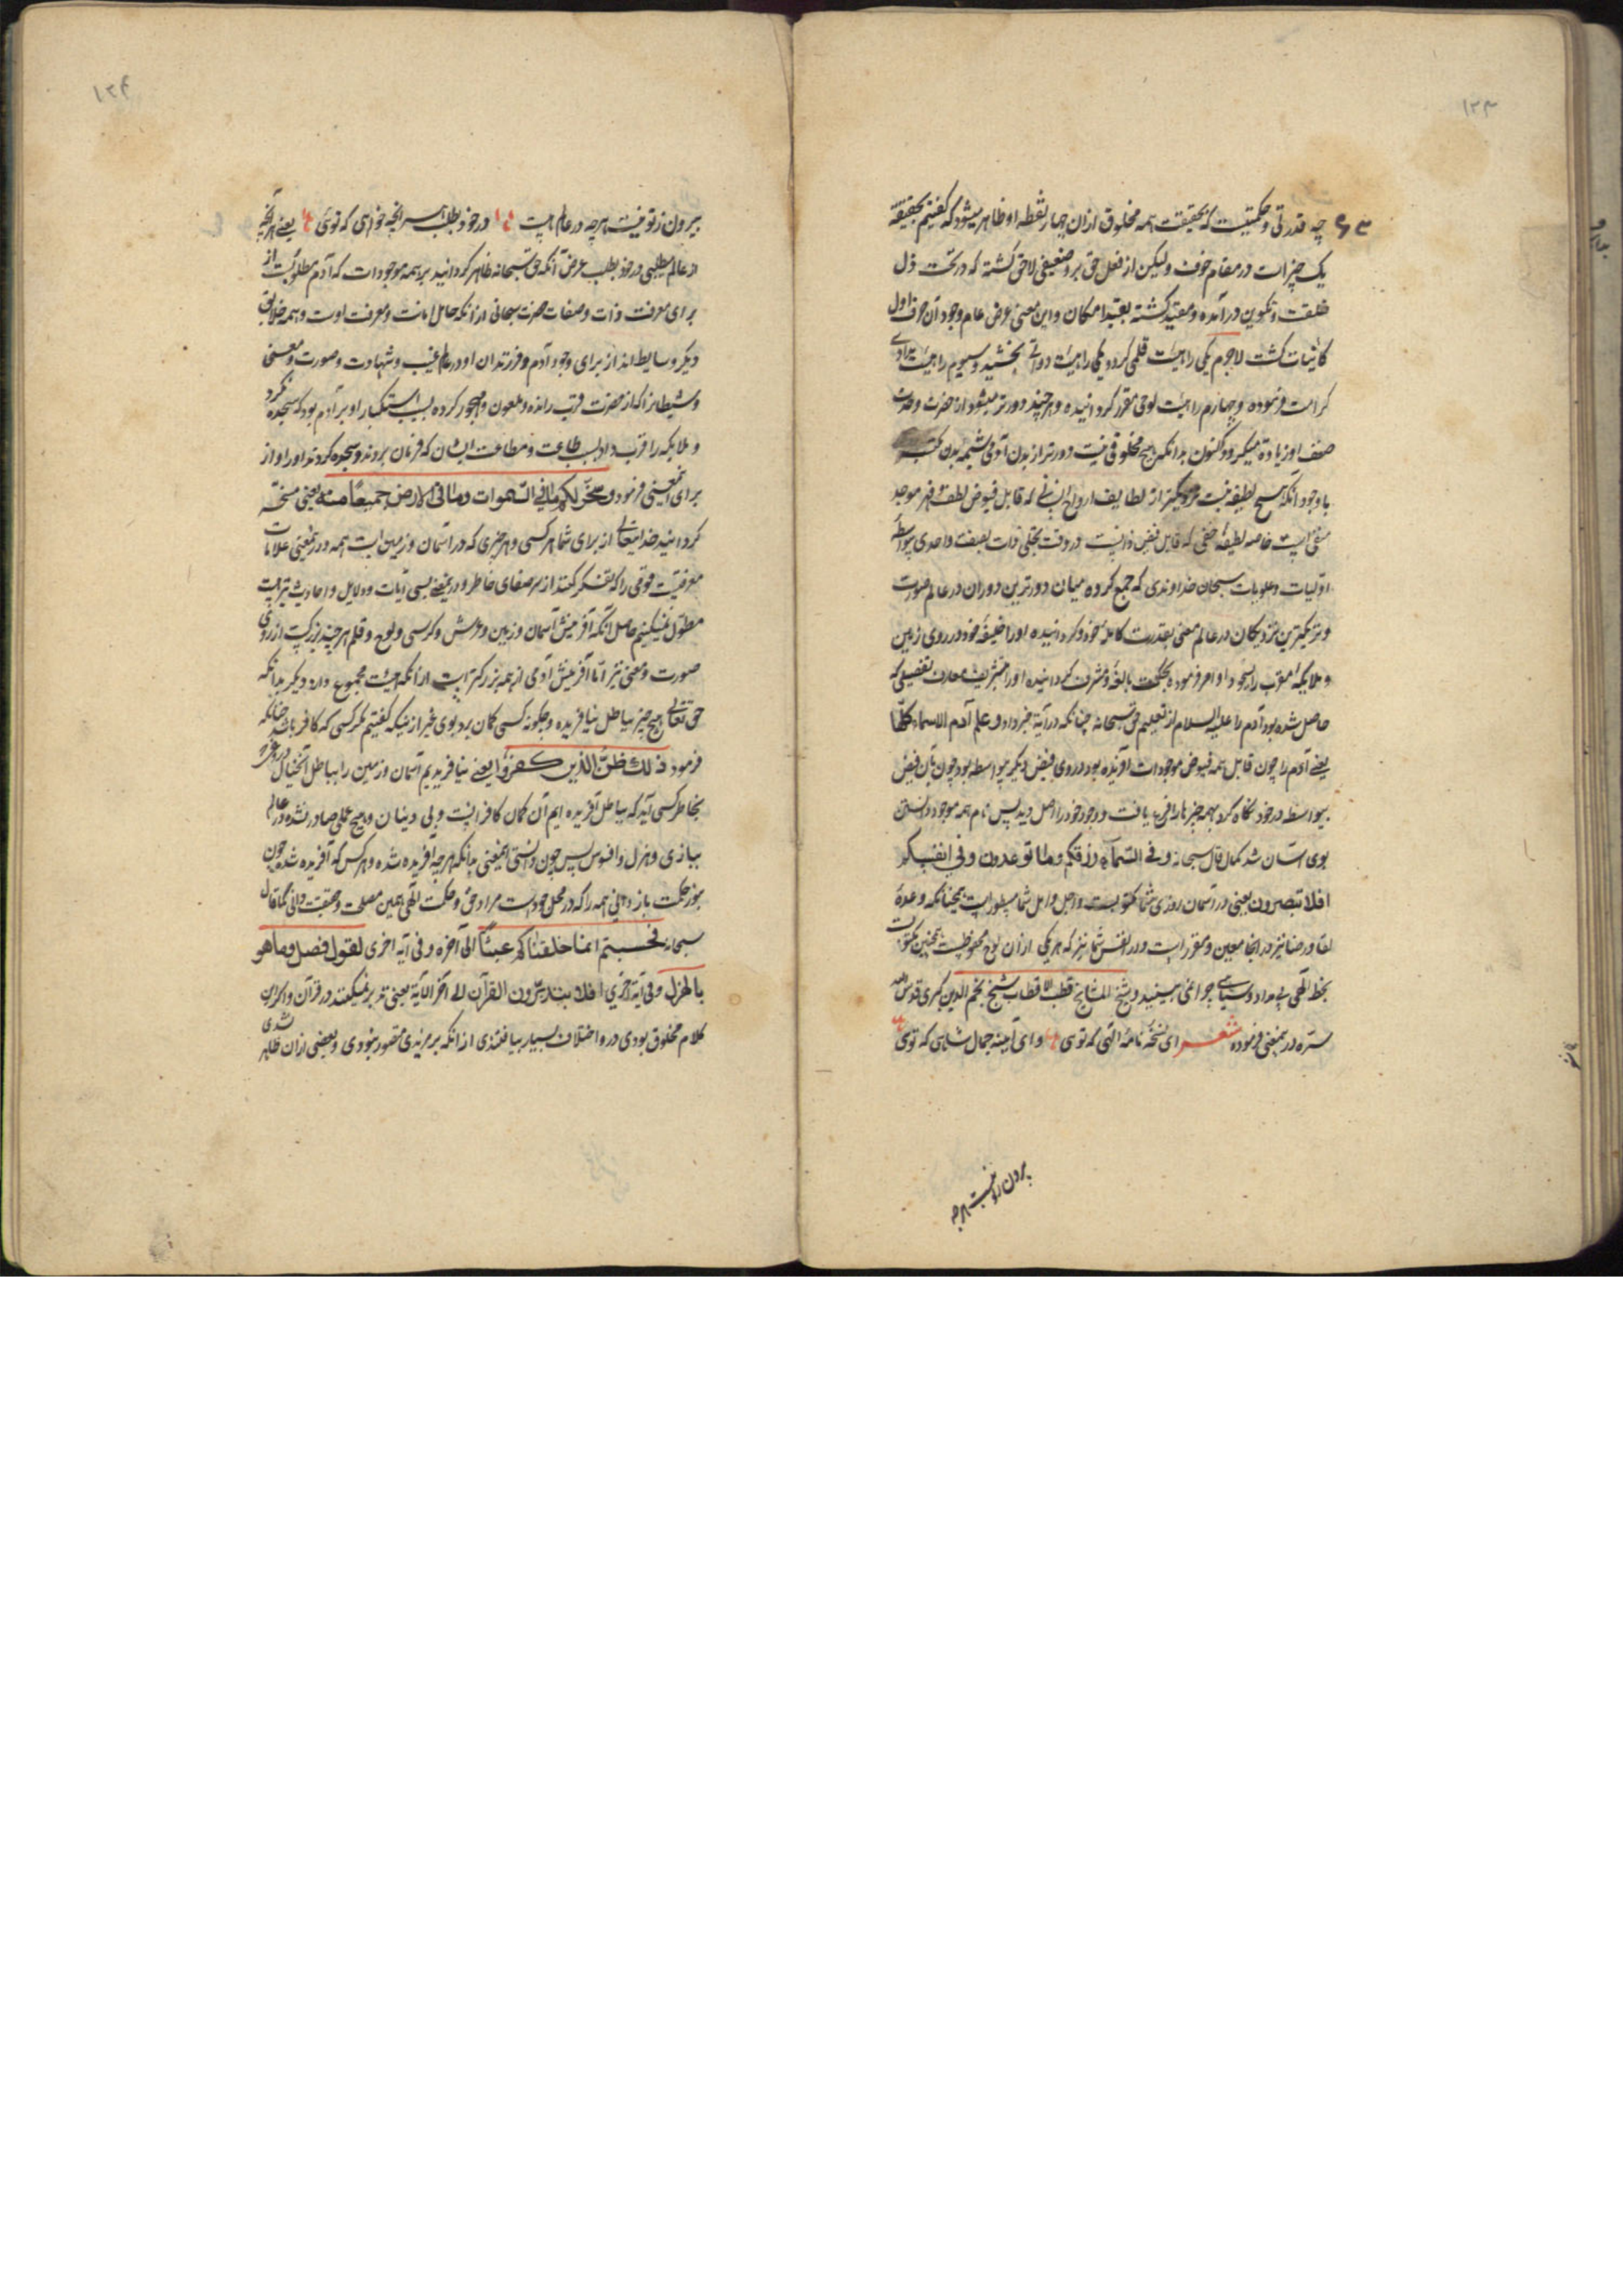 ۱۲۳
چه قدرتی و حکمتیست که بحقیقت همه مخلوق ازان چهار نقطه او ظاهر میشود که گفتیم بحقیقة
یک چیز است در مقام خوف ولیکن از فعل حق برو ضعیفی لاحق گشته که در تحت ذل
خلقت و تکوین درآمده و مقید گشته بقید امکان و این معنی عرض عام وجود آن حرف اول
کاینات گشت لاجرم یکی را هیئت قلمی کرد و یکی را هیئت دواتی بخشید و سیوم را هیئت مدادی
کرامت فرموده و چهارم را هیئت لوحی مقرر گردانیده و هرچند دورتر میشود از حضرت وحدت
ضعف او زیاده میگردد کنون بدانکه هیچ مخلوقی نیست دورتر از بدن آدمی
با وجود آنکه هیچ لطیفه نیست نزدیکتر از لطایف ارواح انسانی که قابل فیوض لطف و قهر موجد
خاصه لطیفه خفی که قابل فیض ذاتیست در وقت تجلی ذات بصفت واحدی بواسطه
اولیات و علویات سبحان خداوندی که جمع کرده میان دورترین دوران در عالم صورت
و نزدیکترین نزدیکان در عالم معنی بقدرت کامله خود و گردانیده او را خلیفه خود در روی زمین
و ملایکه مقرب را بسجود او امر فرموده بحکمت بالغه و مشرف گردانیده او را بتشریف معارف تفصیلی که
حاصل شده بود آدم را علیه السلام از تعلیم حق سبحانه چنانکه در آیة خبر داد و علم آدم الاسماء کلها
یعنی آدم را چون قابل همه فیوض موجودات آفریده بود در وی فیض دیگر بیواسطه بود چون بآن فیض
بیواسطه در خود نگاه کرد همه چیزها را یافت و وجود خود را اصل دید پس نام همه موجود دانستن
بوی آسان شد کمال قال سبحانه و فی السمآء رزقکم وما توعدون و فی انفسکم
افلا تبصرون یعنی در آسمان روزی شما مکتوبست و اجل و امل شما مسطور است همچنانکه وعدهٔ
لقا و رضا نیز در انجا معین و مقرر است و در نفس شما نیز که هر یکی ازان لوح محفوظیست همچنین مکتوبست
بخط الهی بی مداد و سیاهی چرا نمی بینید و شیخ المشایخ قطب الاقطاب شیخ نجم الدین کبری قدس الله
سره درینمعنی فرموده شعر ای نسخه نامهٔ الهی که توی و ای آینه جمال شاهی که توی
بیرون زتو نیست هرچه
۱۲۴
بیرون زتو نیست هرچه در عالم هست در خود بطلب هر انچه خواهی که توی یعنی هر آنچه
از عالم میطلبی در خود بطلب غرض آنکه حق سبحانه ظاهر گردانید بر همه موجودات که آدم مطلوبست از
برای معرفت ذات و صفات حضرت سبحانی ازانکه حامل امانت و معرفت اوست و همه خلایق
دیگر وسایط اند از برای وجود آدم و فرزندان او در عالم غیب و شهادت و صورت و معنی
و شیطانرا که از حضرت قرب رانده و ملعون و مهجور کرده بسبب استکبار او بر آدم بود که سجده نکرد
و ملایکه را قرب داد بسبب طاعت و مطاعت ایشان که فرمان بردند و سجده کردند او را و از
برای اینمعنی فرمود وسخر لکم ما فی السموات وما فی الارض جمیعا منه یعنی مسخر
گردانید خدایتعالی از برای شما هر کسی و هر چیزی که در آسمان و زمین است همه و درینمعنی علامات
معرفتیست قومی را که تفکر کنند از سر صفای خاطر و درینمعنی بسی آیات و دلایل و احادیث نیز هست
مطول نمیکنیم حاصل آنکه آفرینش آسمان و زمین و عرش و کرسی و لوح و قلم هرچند بزرگست از روی
صورت و معنی نیز اما آفرینش آدمی از همه بزرگتر است ازانکه هیئت مجموع دارد دیگر بدانکه
حق تعالی هیچ چیز بباطل نیافریده و چگونه کسی گمان برد بوی غیر ازینکه گفتیم مگر کسی که کافر باشد چنانکه
فرمود ذلک ظن الذین کفروا یعنی نیافریدیم آسمان و زمین را بباطل آنخیال
بخاطر کسی آید که بباطل آفریده ایم آن گمان کافرانست و بی دینان و هیچ عملی صادر نشده در عالم
ببازی و هزل و افسوس پس چون دانستی اینمعنی بدانکه هرچه آفریده شده و هر کس که آفریده شده چون
بنور حکمت باز دانی همه را که در محل خود است مراد حق و حکمت الهی و عین مصلحت و حقیقت دانی کما قال
سبحانه افحسبتم انما خلقناکم عبثا الی آخره و فی آیه اخری لقول فصل وما هو
بالهزل و فی آیة اخری افلا یتدبرون القرآن الی آخر الآیة یعنی تدبر نمیکنند در قرآن و اگر این
کلام مخلوق بودی درو اختلاف بسیار بیافتندی ازانکه بر مرادی مقصور نبودی و بعضی ازان ظاهر شدی